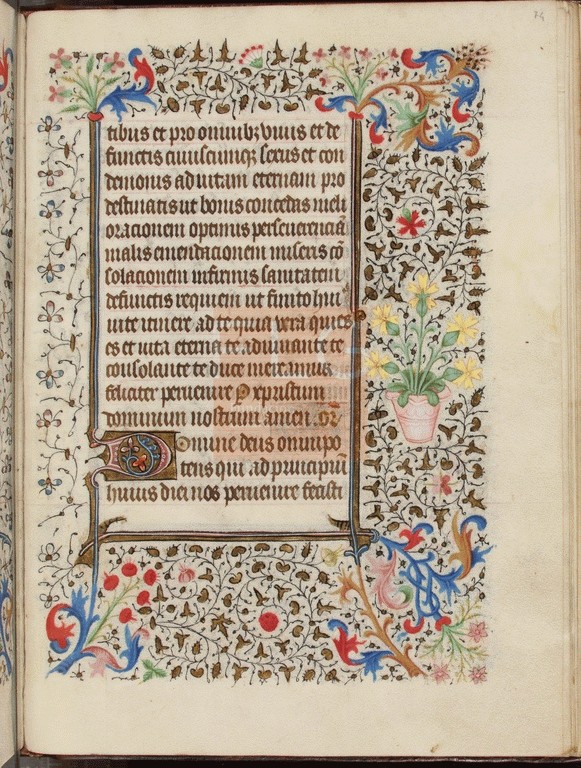 74
tibus et pro omnibꝫ viuis et de
functis cuiuscumqꝫ sexus et con
demonis ad uitam eternam pro
destinatis ut bonis concedas meli
oracionem optimis perseuerenciā
malis emendacionem miseris cō
solacionem infirmis sanitatem
defunctis requiem ut finito hui
uite itinere ad te quia vera quies
es et uita eterna te adiuuante te
consolante te duce mereamur
feliciter peruenire P xpristum
dominum nostrum amen or̄
Domine deus omnipo
tens qui ad principiū
huius diei nos peruenire fecisti